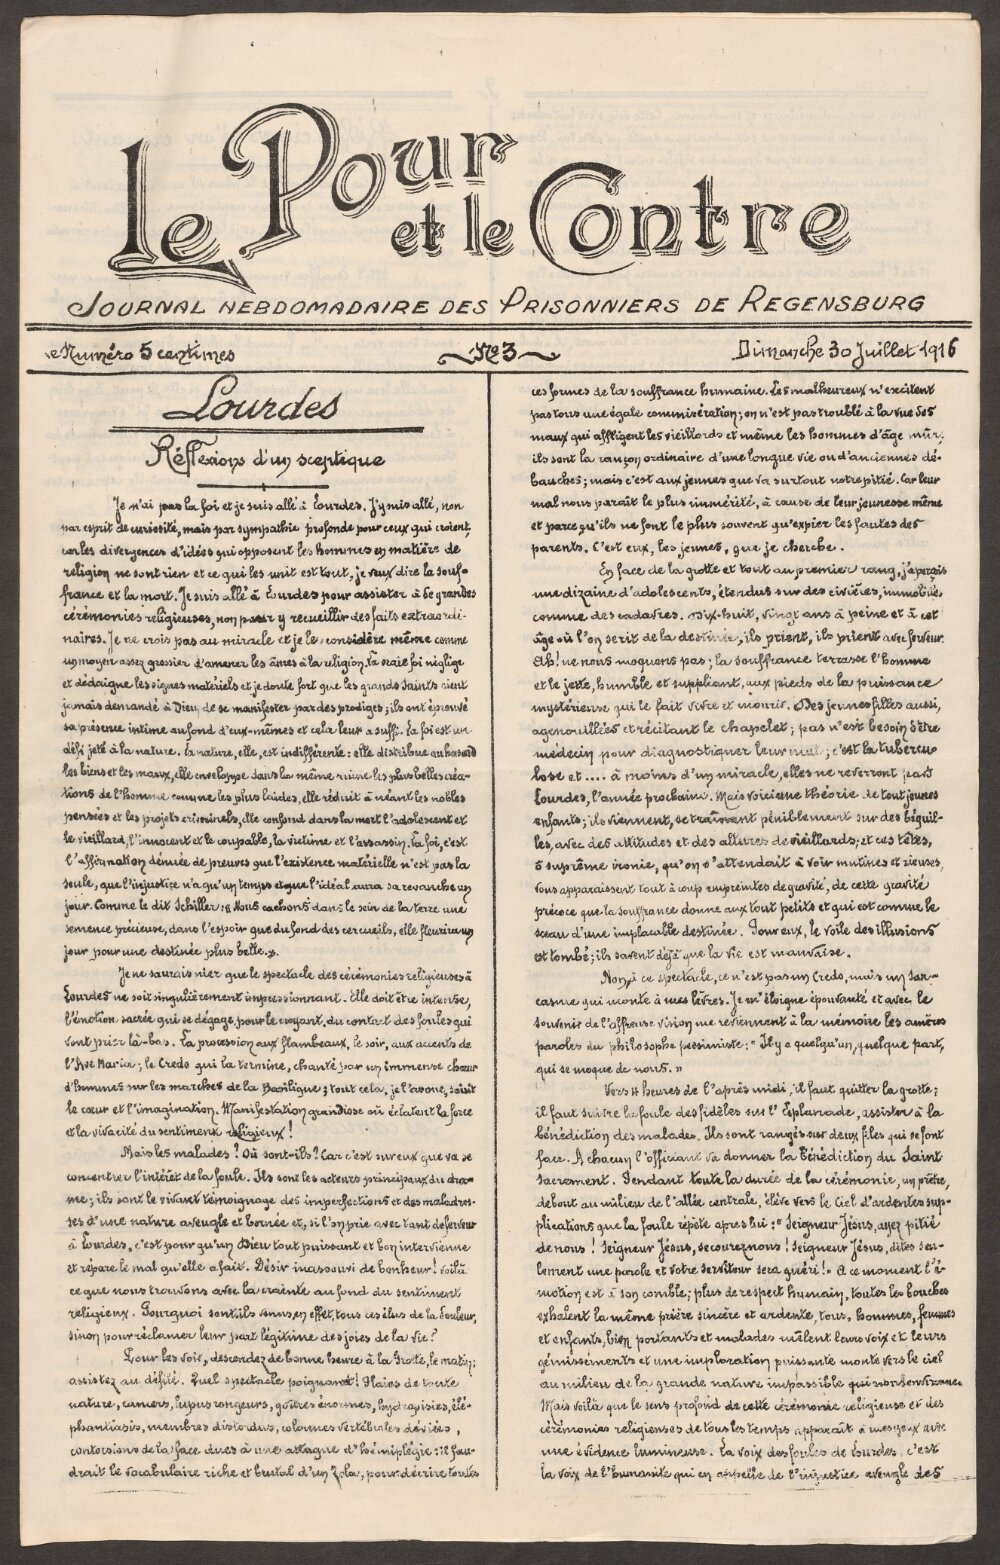 Le Pour
et le Contre
Journal hebdomadaire des Prisonniers de Regensburg
Le Numéro 5 centimes
No 3
Dimanche 30 Juillet 1916
Lourdes
Réflexions d'un sceptique
Je n'ai pas la foi et je suis allé à Lourdes. J'y suis allé, non
par esprit de curiosité, mais par sympathie profonde pour ceux qui croient,
car les divergences d'idées qui opposent les hommes en matière de
religion ne sont rien et ce qui les unit est tout, je veux dire la souf-
france et la mort. Je suis allé à Lourdes pour assister à de grandes
cérémonies religieuses, non pour y recueillir des faits extraordi-
naires. Je ne crois pas au miracle et je le considère même comme
un moyen assez grossier d'amener les âmes à la religion. La vraie foi néglige
et dédaigne les signes matériels et je doute fort que les grands Saints aient
jamais demandé à Dieu de se manifester par des prodiges; ils ont éprouvé
sa présence intime au fond d'eux-mêmes et cela leur a suffi. La foi est un
défi jeté à la nature. La nature, elle, est indifférente: elle distribue au hasard
les biens et les maux, elle enveloppe dans la même ruine les plus belles créa-
tions de l'homme comme les plus laides, elle réduit à néant les nobles
pensées et les projets criminels, elle confond dans la mort l'adolescent et
le vieillard, l'innocent et le coupable, la victime et l'assassin. La foi, c'est
l'affirmation dénuée de preuves que l'existence matérielle n'est pas la
seule, que l'injustice n'a qu'un temps et que l'idéal aura sa revanche un
jour. Comme le dit Schiller: « Nous cachons dans le sein de la terre une
semence précieuse, dans l'espoir que du fond des cercueils, elle fleurira un
jour pour une destinée plus belle.».
Je ne saurais nier que le spectacle des cérémonies religieuses à
Lourdes ne soit singulièrement impressionnant. Elle doit être intense,
l'émotion sacrée qui se dégage, pour le croyant, du contact des foules qui
vont prier là-bas. La procession aux flambeaux, le soir, aux accents de
l'Ave Maria; le Credo qui la termine, chanté par un immense chœur
d'hommes sur les marches de la Basilique; tout cela, je l'avoue, saisit
le cœur et l'imagination. Manifestation grandiose où éclatent la force
et la vivacité du sentiment religieux!
Mais les malades? Où sont-ils? Car c'est sur eux que va se
concentrer l'intérêt de la foule. Ils sont les acteurs principaux du dra-
me; ils sont le vivant témoignage des imperfections et des maladres-
ses d'une nature aveugle et bornée et, si l'on prie avec tant de ferveur
à Lourdes, c'est pour qu'un Dieu tout puissant et bon intervienne
et répare le mal qu'elle a fait. Désir inassouvi de bonheur! voilà
ce que nous trouvons avec la crainte au fond du sentiment
religieux. Pourquoi sont-ils venus, en effet, tous ces élus de la douleur,
sinon pour réclamer leur part légitime des joies de la vie?
Pour les voir, descendez de bonne heure à la Grotte, le matin;
assistez au défilé. Quel spectacle poignant! Plaies de toute
nature, cancers, lupus rongeurs, goîtres énormes, hydropisies, élé-
phantiasis, membres distordus, colonnes vertébrales déviées,
contorsions de la face dues à une attaque d'hémiplégie: il fau-
drait le vocabulaire riche et brutal d'un Zola, pour décrire toutes
ces formes de la souffrance humaine. Les malheureux n'excitent
pas tous une égale commisération; on n'est pas troublé à la vue des
maux qui affligent les vieillards et même les hommes d'âge mûr;
ils sont la rançon ordinaire d'une longue vie ou d'anciennes dé-
bauches; mais c'est aux jeunes que va surtout notre pitié. Car leur
mal nous paraît le plus immérité, à cause de leur jeunesse même
et parce qu'ils ne font le plus souvent qu'expier les fautes des
parents. C'est eux, les jeunes, que je cherche.
En face de la grotte et tout au premier rang, j'aperçois
une dizaine d'adolescents, étendus sur des civières, immobiles
comme des cadavres. Dix-huit, vingt ans à peine et à cet
âge où l'on se rit de la destinée, ils prient, ils prient avec ferveur.
Ah! ne nous moquons pas; la souffrance terrasse l'homme
et le jette, humble et suppliant, aux pieds de la puissance
mystérieuse qui le fait vivre et mourir. Des jeunes filles aussi,
agenouillées et récitant le chapelet; pas n'est besoin d'être
médecin pour diagnostiquer leur mal; c'est la tubercu
lose et .... à moins d'un miracle, elles ne reverront pas
Lourdes, l'année prochaine. Mais voici une théorie de tout jeunes
enfants; ils viennent, se traînant péniblement sur des béquil-
les, avec des attitudes et des allures de vieillards; et ces têtes,
ô suprême ironie, qu'on s'attendait à voir mutines et rieuses,
vous apparaissent tout à coup empreintes de gravité, de cette gravité
précoce que la souffrance donne aux tout petits et qui est comme le
sceau d'une implacable destinée. Pour eux, le voile des illusions
est tombé; ils savent déjà que la vie est mauvaise.
Non, à ce spectacle, ce n'est pas un Credo, mais un sar-
casme qui monte à mes lèvres. Je m'éloigne épouvanté et avec le
souvenir de l'affreuse vision me reviennent à la mémoire les amères
paroles du philosophe pessimiste: " Il y a quelqu'un, quelque part,
qui se moque de nous. »
Vers 4 heures de l'après midi, il faut quitter la grotte;
il faut suivre la foule des fidèles sur l'Esplanade, assister à la
bénédiction des malades. Ils sont rangés sur deux files qui se font
face. A chacun l'officiant va donner la bénédiction du Saint
Sacrement. Pendant toute la durée de la cérémonie, un prêtre,
debout au milieu de l'allée centrale, élève vers le Ciel d'ardentes sup-
plications que la foule répète après lui: " Seigneur Jésus, ayez pitié
de nous! Seigneur Jésus, secourez nous! Seigneur Jésus, dites seu-
lement une parole et votre serviteur sera guéri!" A ce moment l'é-
motion est à son comble; plus de respect humain, toutes les bouches
exhalent la même prière sincère et ardente, tous, hommes, femmes
et enfants, bien portants et malades mêlent leurs voix et leurs
gémissements et une imploration puissante monte vers le ciel
au milieu de la grande nature impassible qui nous environne.
Mais voilà que le sens profond de cette cérémonie religieuse et des
cérémonies religieuses de tous les temps apparaît à mes yeux avec
une évidence lumineuse. La voix des foules de Lourdes, c'est
la voix de l'humanité qui en appelle de l'injustice aveugle des